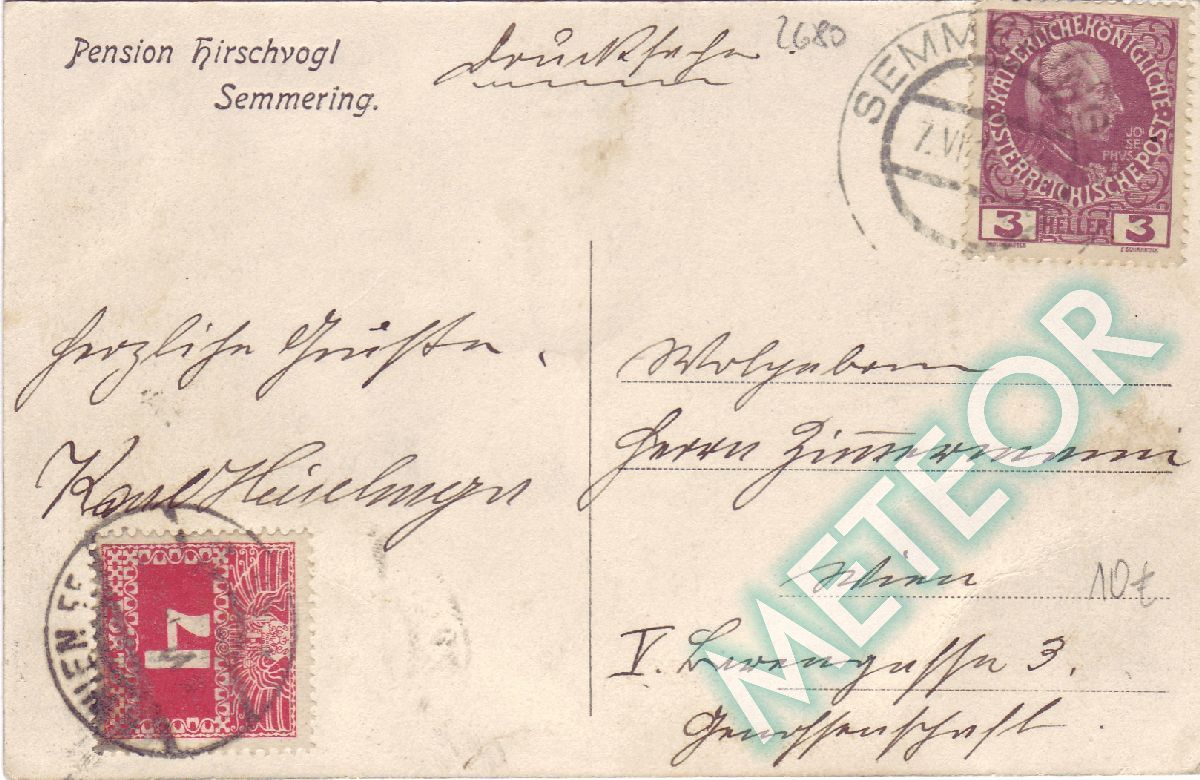 Pension Hirschvogl
Semmering.
Drucksache
2680
SEMM
7. VI
KAISERLICHE KÖNIGLICHE
ÖSTERREICHISCHE POST
JO
SE
PHVS
3 HELLER 3
Herzliche Grüße
Karl
4
WIEN
Herrn Zimmermann
Wien
10€
V. 3.
Genossenschaft
METEOR